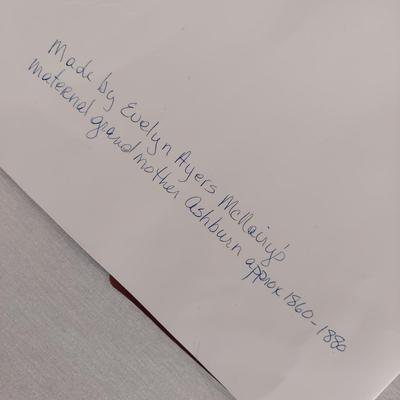 Made by Evelyn Ayers McNairy's
maternal grandmother Ashburn approx 1860-1880